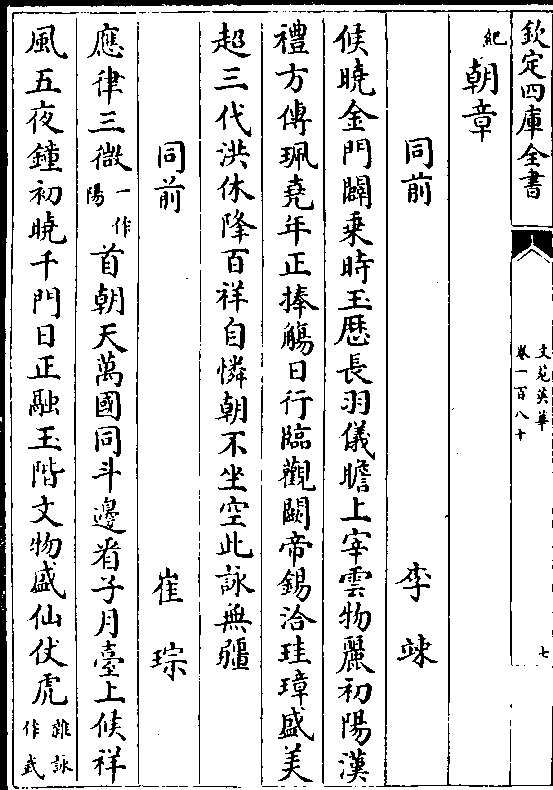 欽定四庫全書
文苑英華
卷一百八十
七
紀朝章
同前 李竦
候曉金門闢乗時玉厯長羽儀瞻上宰雲物麗初陽漢
禮方傳珮堯年正捧觴日行臨觀闕帝錫洽珪璋盛美
超三代洪休降百祥自憐朝不坐空此詠無疆
同前 崔琮
應律三微一作陽首朝天萬國同斗邊看子月臺上候祥
風五夜鐘初曉千門日正融玉階文物盛仙仗虎雜詠作武